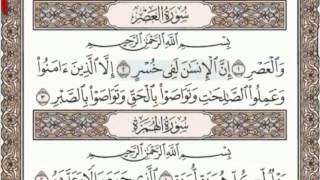 سُورَةُ العَصْرِ
بِسْمِ اللَّهِ الرَّحْمَٰنِ الرَّحِيمِ
وَالْعَصْرِ ١ إِنَّ الْإِنسَانَ لَفِي خُسْرٍ ٢ إِلَّا الَّذِينَ ءَامَنُوا
وَعَمِلُوا الصَّالِحَاتِ وَتَوَاصَوْا بِالْحَقِّ وَتَوَاصَوْا بِالصَّبْرِ ٣
سُورَةُ الهُمَزَةِ
بِسْمِ اللَّهِ الرَّحْمَٰنِ الرَّحِيمِ